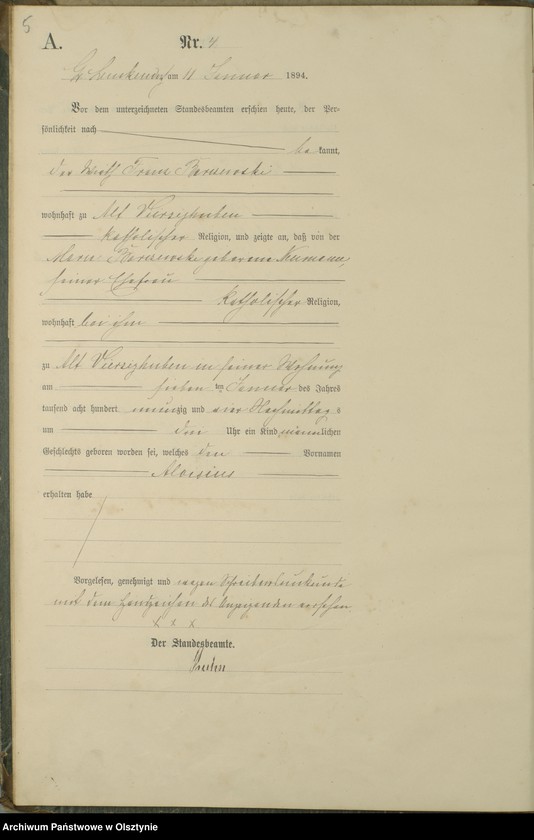 5
A.
Nr. 4
am 11 Januar 1894.
Vor dem unterzeichneten Standesbeamten erschien heute, der Per-
sönlichkeit nach
be kannt,
der Wirth Franz
wohnhaft zu Alt Vierzighuben
katholischer Religion, und zeigte an, daß von der
geborene Neumann,
seiner Ehefrau
katholischer Religion,
wohnhaft bei ihm
zu Alt Vierzighuben in seiner Wohnung
am sieben ten Januar des Jahres
tausend acht hundert neunzig und vier Nachmittags
um drei Uhr ein Kind männlichen
Geschlechts geboren worden sei, welches den Vornamen
Aloisius
erhalten habe
Vorgelesen, genehmigt und wegen Schreibensunkunde
mit dem Handzeichen des Anzeigenden versehen
x x x
Der Standesbeamte.
Archiwum Państwowe w Olsztynie